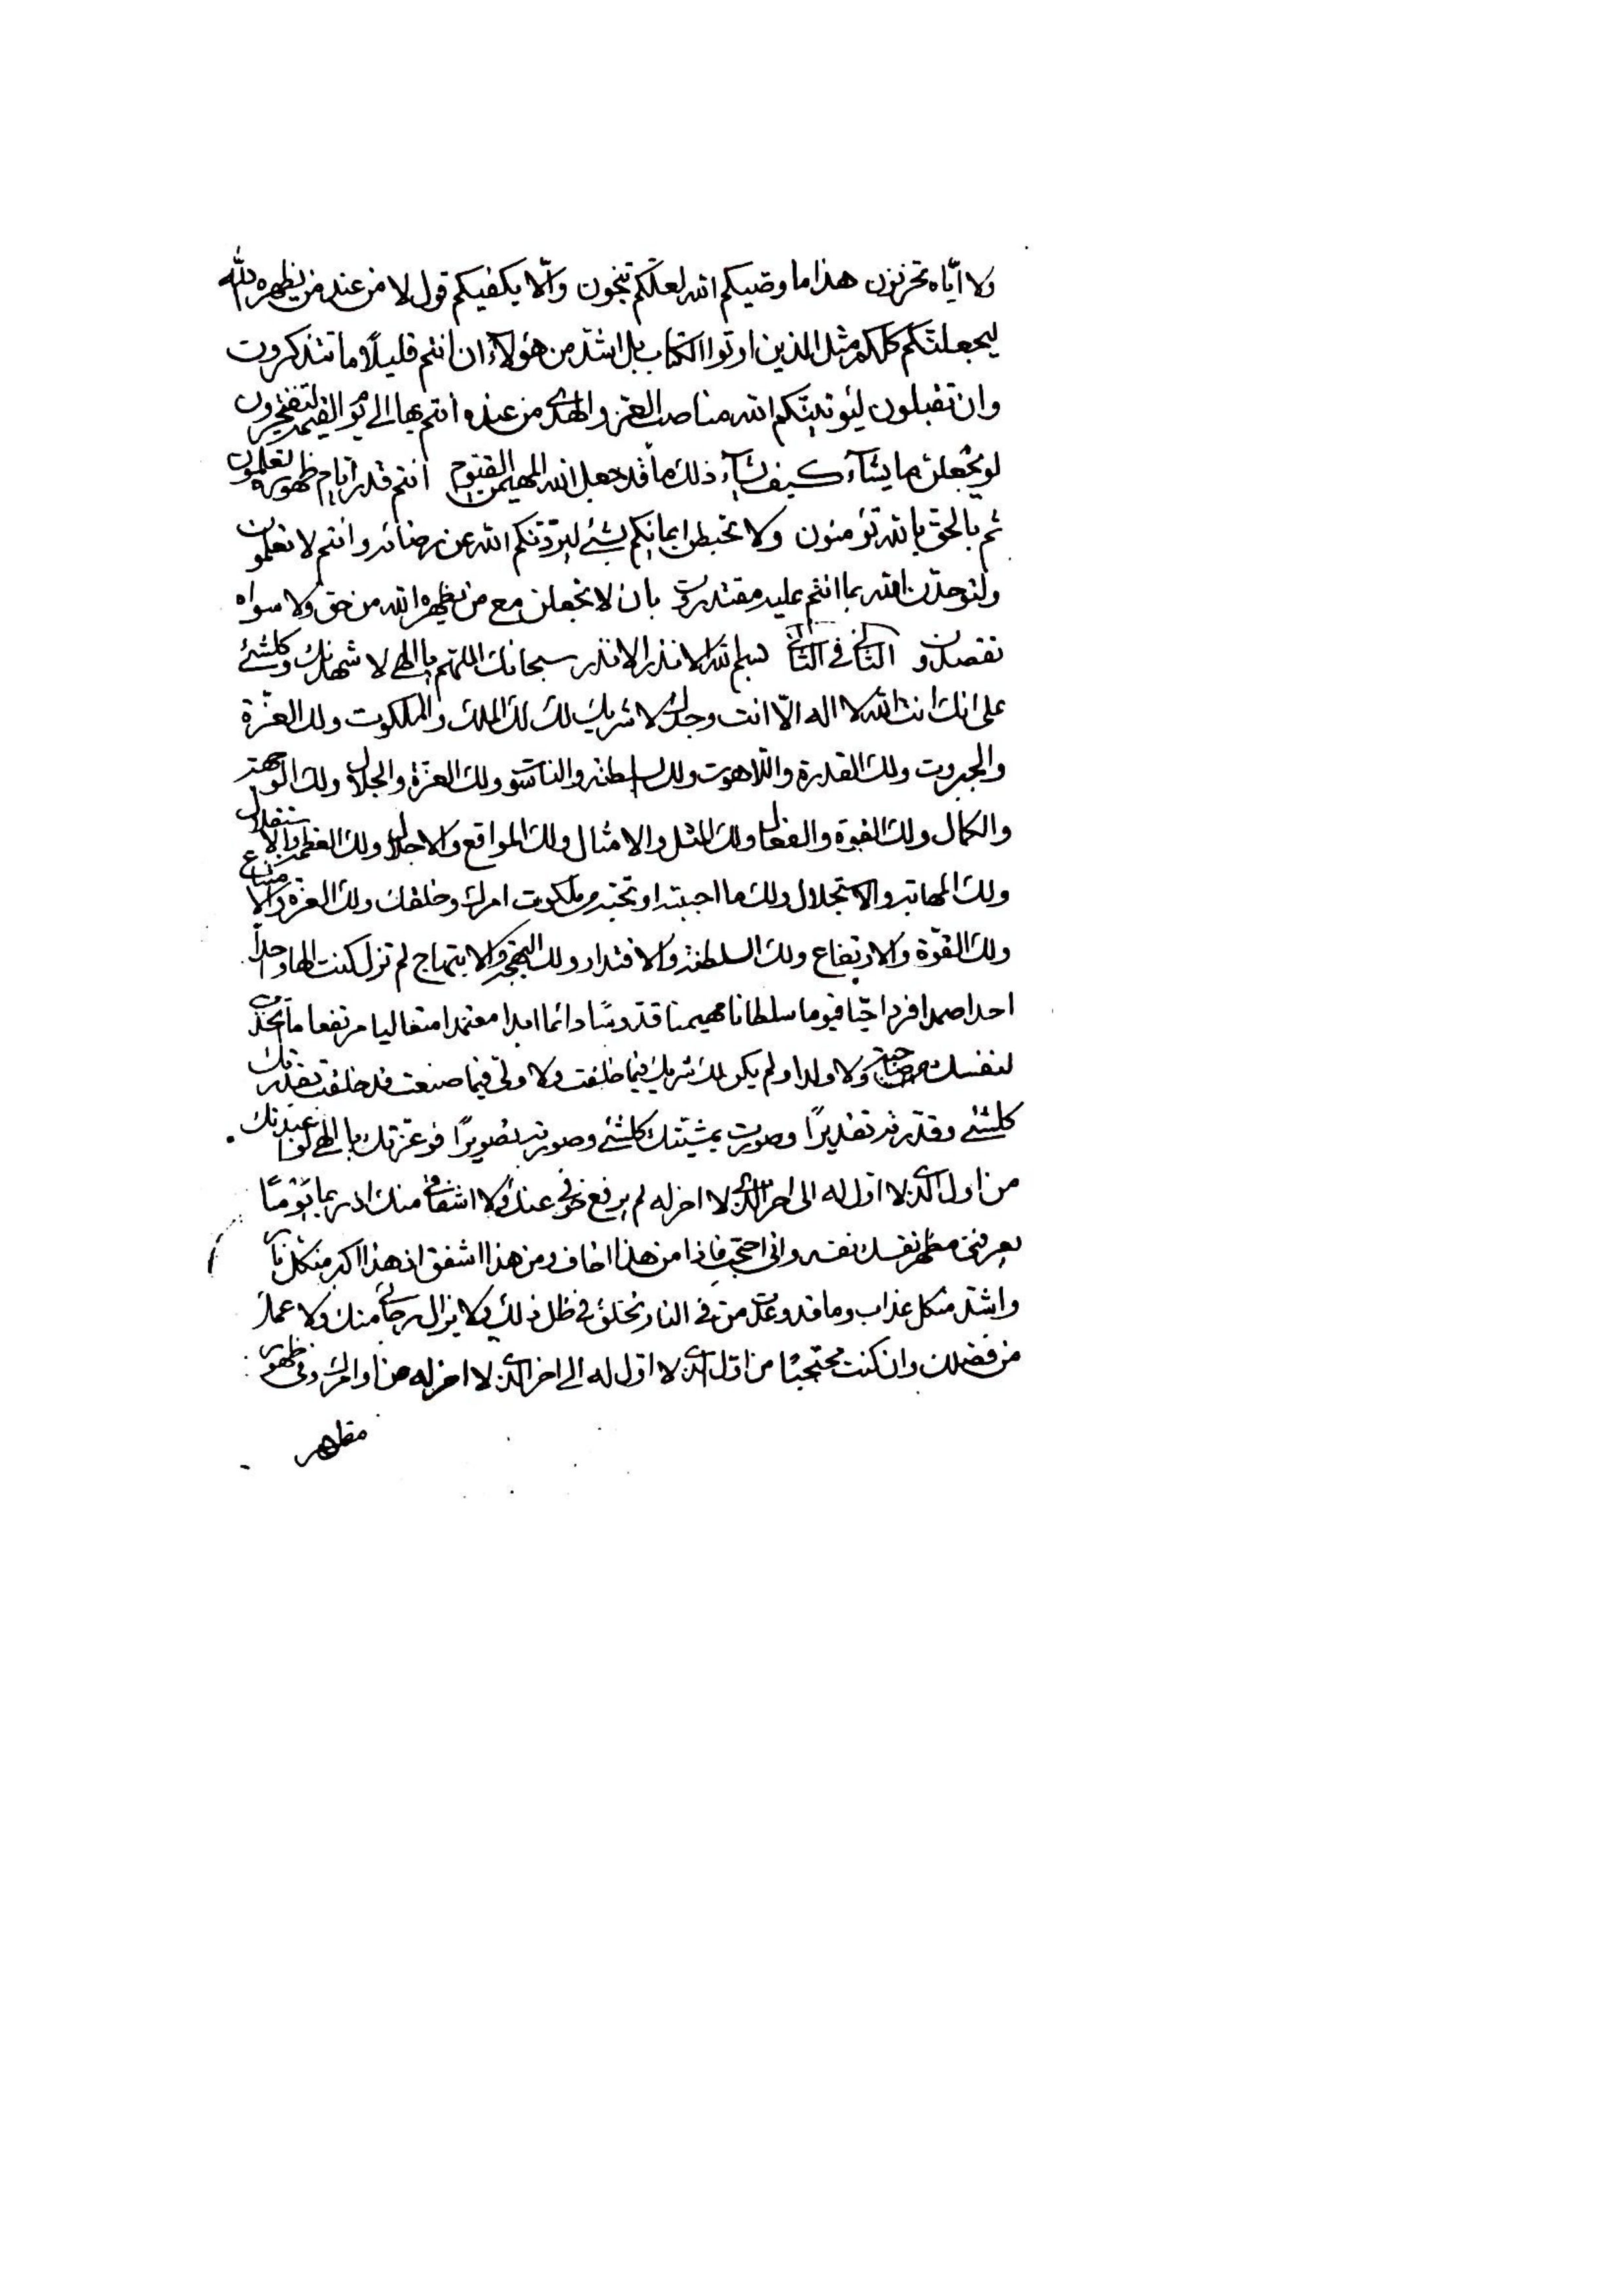 ولا ایّاه تحزنون هذا ما وصّیکم الله لعلّکم تنجون والّا یکفیکم قول لا من عند من یظهره الله
لیجعلنّکم کلکم مثل الذین اوتوا الکتاب بل اشدّ من هؤلاء ان انتم قلیلًا ما تتذکرون
وان تقبلون لیؤتینّکم الله مناصب العز والهدی من عنده انتم بها الی یوم القیمة لتفتخرون
لو یجعلن ما یشاء کیف یشاء ذلک ما قد جعل الله المهیمن القیوم انتم قدر ایام ظهوره لتعلمون
ثم بالحق بالله تؤمنون ولا تحبطن ایمانکم بشئ لیردّنکم الله عن رضائه وانتم لا تعلمون
ولتوحدّن الله بما انتم علیه مقتدرون بان لا تجعلن مع من یظهره الله من حق ولا سواه
تقصدون و الثانی فی الثانی بسم الله الاقدر الاقدر سبحانک اللهم یا الهی لاشهدنک وکلشئ
علی انک انت الله لا اله الّا انت وحدک لا شریک لک لک الملک والملکوت ولک العزّة
والجبروت ولک القدرة واللاهوت ولک السلطنة والناسوت ولک العزّة والجلال ولک الوجهة
والکمال ولک القوة والفعال ولک المثل والامثال ولک المواقع والاجلال ولک العظمة والاستقلال
ولک المهابة والاستجلال ولک ما احببته او تحبه من ملکوت امرک وخلقک ولک العزة والامتناع
ولک القوّة والارتفاع ولک السلطنة والاقتدار ولک البهجة والابتهاج لم تزل کنت الها واحداً
احدا صمدا فردا حیّا قیوما سلطانا مهیمنا قدّوسًا دائما ابدا معتمدا متعالیا مرتفعا ما تخذت
لنفسک صاحبة ولا ولدا ولم یکن لک شریک فیما خلقت ولا ولیّ فیما صنعت قد خلقت بقدرتک
کلشئ وقدّرته تقدیرًا وصورت بمشیتک کلشئ وصورته تصویرًا فوعزّتک یا الهی لو عبدتک
من اول الذی لا اوّل له الی اخر الذی لا اخر له لم یرفع خوفی عندک ولا اشفاقی منک اذ ربما یَوْمًا
یعرفنی مظهر نفسک نفسه وانی احتجب فاذا من هذا اخاف ومن هذا اشفق اذ هذا اکبر من کل نار
واشد من کل عذاب وما قد وعدت من فی النار تخلق فی ظل ذلک ولا یزال رجائی منک ولا
من فضلک وان کنت محتجبًا من اوّل الذی لا اوّل له الی اخر الذی لا اخر له عن اوامرک وفی ظهور
مظهر